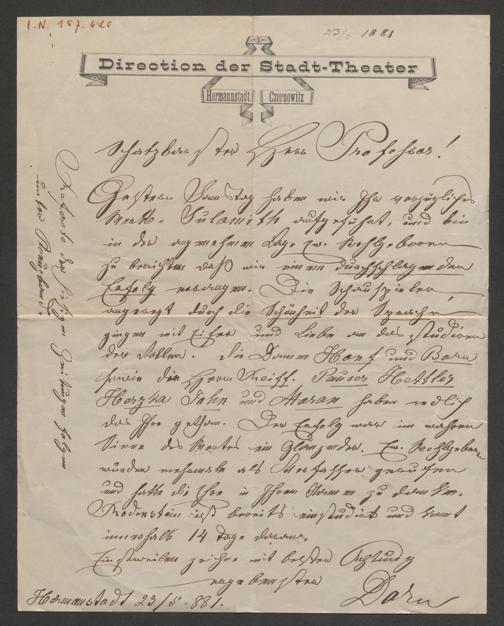 I.N. 157.620
23/5 1881
Direction der Stadt-Theater
Hermannstadt Czernowitz
Schätzbarster Herr Professor!
Gestern Samstag haben wir Ihr vorzügliches
Werk - Sulamith aufgeführt, und bin
in der angenehmen Lage Ew. Wohlgeboren
zu berichten daß wir einen durchschlagenden
Erfolg errangen. Die Schauspieler,
angeregt durch die Schönheit der Sprache
gingen mit Eifer und Liebe an das Studium
der Rollen. Die Damen und
sowie die Herren Pauser Hettler
und haben redlich
das Ihre gethan. Der Erfolg war im wahren
Sinne des Wortes ein Glänzender. Ew. Wohlgeboren
wurden mehrmals als Verfasser gerufen
und hatte die Ehre in Ihrem Namen zu danken.
ist bereits einstudirt und kommt
innerhalb 14 Tage daran.
Einstweilen zeichne mit bester Achtung
ergebenster
Dorn
Hermannstadt 23/5. 881.
Referate der hiesigen Zeitungen folgen
unter Kreuzband.